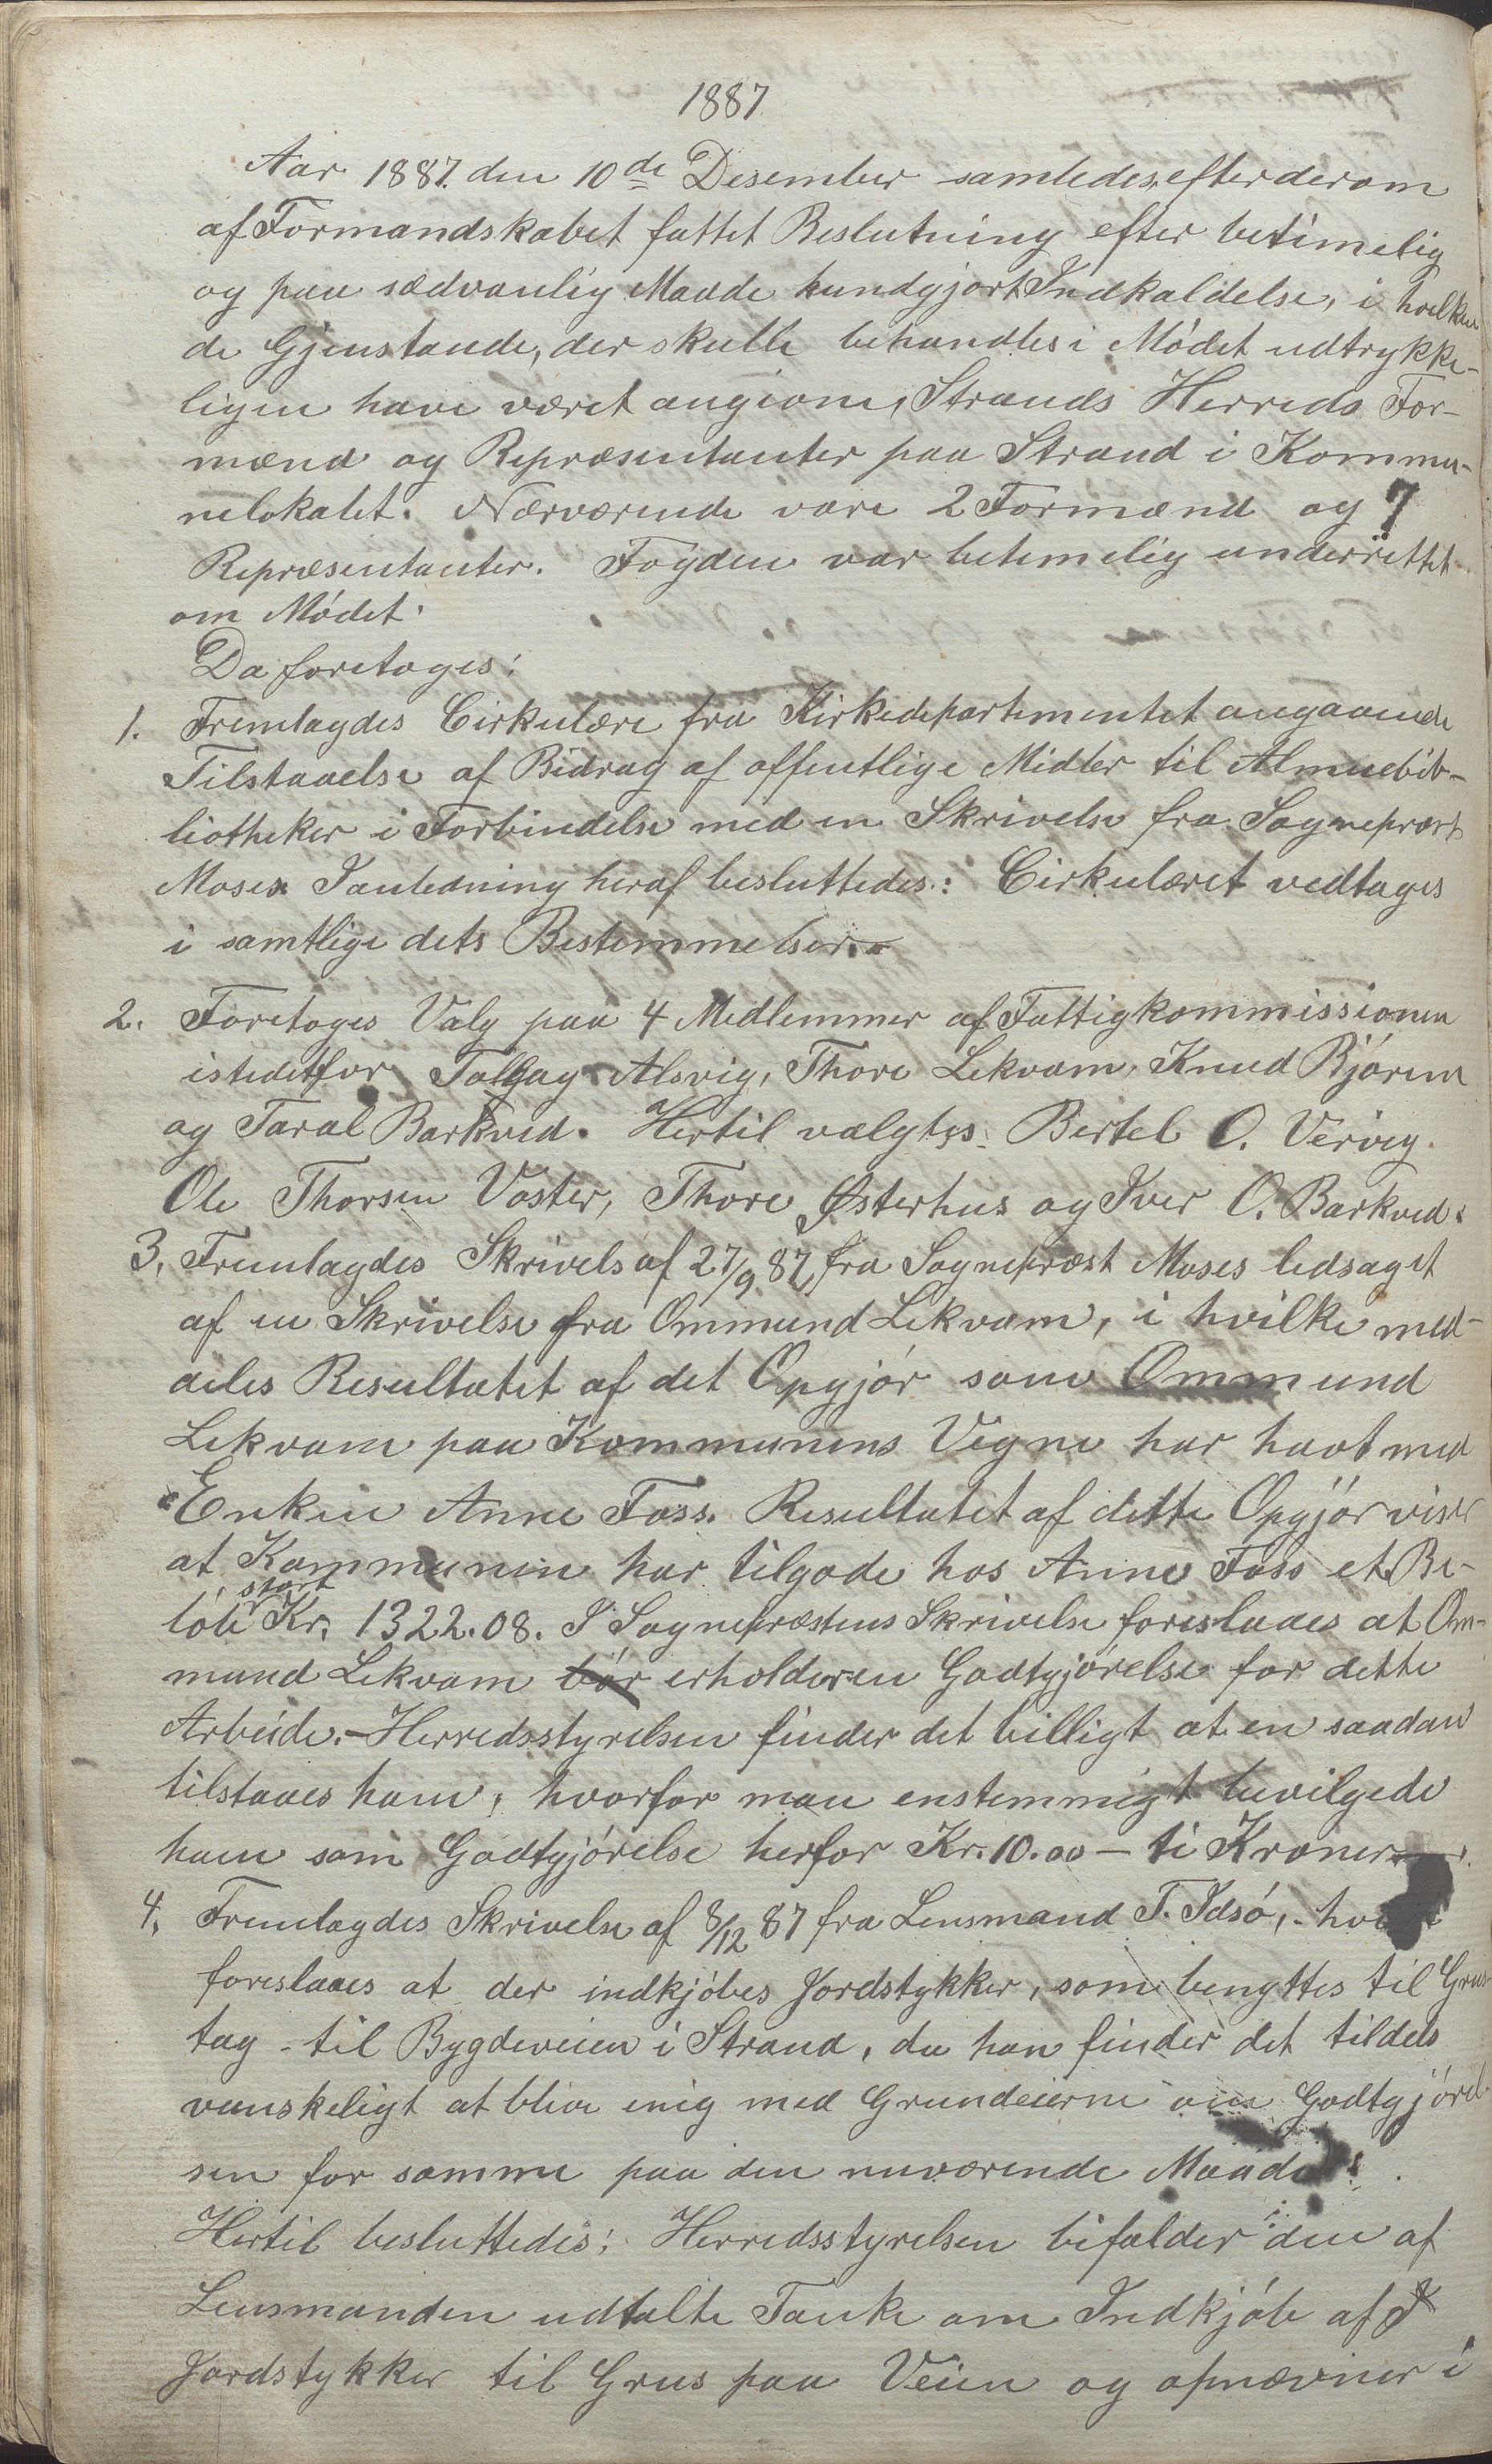 1887
Aar 1887. den 10de Desember samledes, efter derom
af Formandskabet fattet Beslutning efter betimelig
og paa sædvanlig Maade kundgjort Indkaldelse, i hvilken
de Gjenstande, der skulle behandles i Mødet udtrykke-
ligen have været angivne, Strands Herreds For-
mænd og Repræsentanter paa Strand i Kommu-
nelokalet. Nærværende vare 2 Formænd og 7
Repræsentanter. Fogden var betimelig underrettet
om Mødet.
Da foretoges:
1. Fremlagdes Cirkulære fra Kirkedepartementet angaaende
Tilstaaelse af Bidrag af offentlige Midler til Almuebib-
liotheker i Forbindelse med en Skrivelse fra Sognepræst
Moses. I anledning heraf besluttedes: Cirkulæret vedtages
i samtlige dets Bestemmelser.
2. Foretoges Valg paa 4 Medlemmer af Fattigkommissionen
istedetfor Tollag Alsvig, Thore Lekvam, Knud Bjøren
og Taral Barkved. Hertil valgtes Bertel O. Vervig.
Ole Thorsen Voster, Thore Østerhus og Iver O. Barkved.
3. Fremlagdes Skrivels af 27/9 87, fra Sognepræst Moses ledsaget
af en Skrivelse fra Ommund Lekvam, i hvilke med-
deles Resultatet af det Opgjør som Ommund
Lekvam paa Kommunens Vegne har havt med
Enken Anne Foss. Resultatet af dette Opgjør viser
at Kommunen har tilgode hos Anne Foss et Be-
løb stort Kr. 1322.08. I Sognepræstens Skrivelse foreslaaes at Om-
mund Lekvam bør erholder en Godtgjørelse for dette
Arbeide. - Herredsstyrelsen finder det billigt at en saadan
tilstaaes ham, hvorfor man enstemmigt bevilgede
ham som Godtgjørelse herfor Kr. 10.00 - ti Kroner.
4. Fremlagdes Skrivelse af 8/12 87 fra Lensmand T. Idsø,
foreslaaes at der indkjøbes Jordstykker, som benyttes til Grus-
tag - til Bygdeveien i Strand, da han finder det tildels
vanskeligt at blive enig med Grundeierne om Godtgjørel-
sen for samme paa den nuværende Maade.
Hertil besluttedes: Herredsstyrelsen bifalder den af
Lensmanden udtalte Tanke om Indkjøb af
Jordstykker til Grus paa Veien og opnævner i